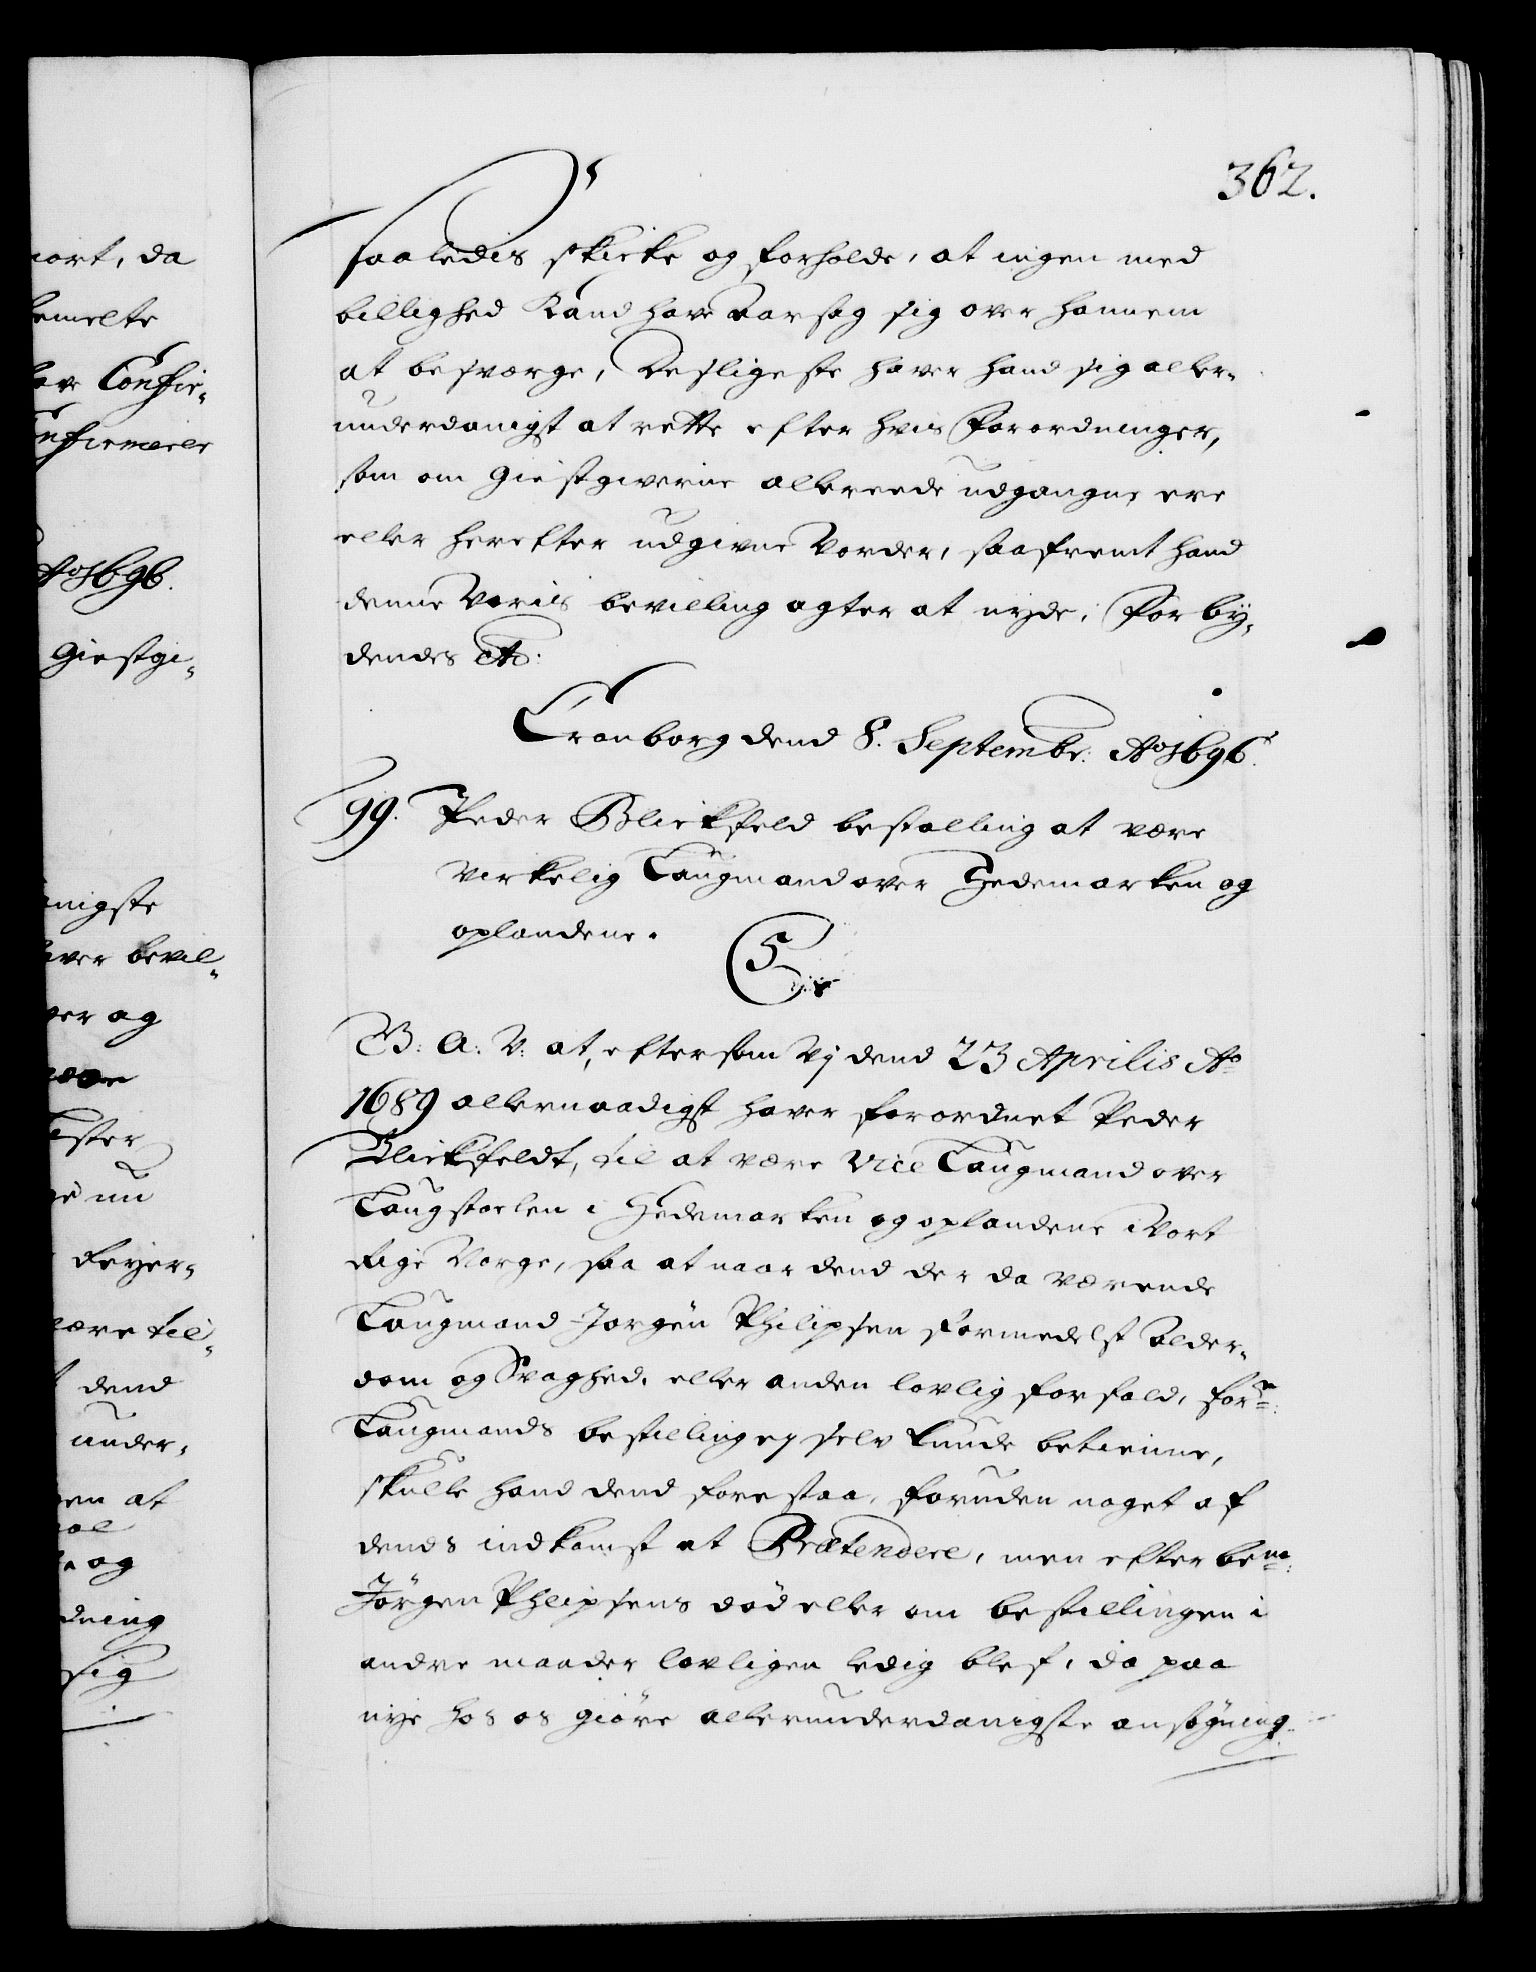 362.
saaledis skicke og forholde, at ingen med
billighed kand have aarsag sig over hannem
at besværge, Desligeste haver hand sig aller-
underdanigst at rette efter hvis Forordninger,
som om giestgiverne allereede udgangne ere
eller herefter udgivne vorder, saafremt hand
denne voris bevilling agter at nyde, Forby-
dendes etc:
Cronborg dend 8. Septembr: Ao 1696.
99. Peder Blickfeld bestalling at være
virkelig Laugmand over Hedemarken og
oplandene.
C5
G: A: V: at, eftersom Vj dend 23 Aprilis Ao
1689 allernaadigst haver forordnet Peder
Blickfeldt, til at være Vice Laugmand over
Laugstoelen i Hedemarken og oplandene i Vort
Rige Norge, saa at naar dend der da værende
Laugmand Jorgen Philipsen formedelst Alder-
dom og Svaghed, eller anden lovlig forfald, forne:
Laugmands bestilling ej selv kunde betienne,
skulle hand dend forestaa, foruden noget af
dends indkomst at Prætendere, men efter bemte:
Jörgen Phlipsens död eller om bestillingen i
andre maader lovligen ledig blef, da paa
nye hos os giöre allerunderdanigste ansögning.
iort, da
bemelte
Confir-
nfirmerer
Ao 1696.
Giestgi-
nigste
ver bevil-
ger og
nu
Feyer-
være til-
dend
under-
en at
og
dning
sig